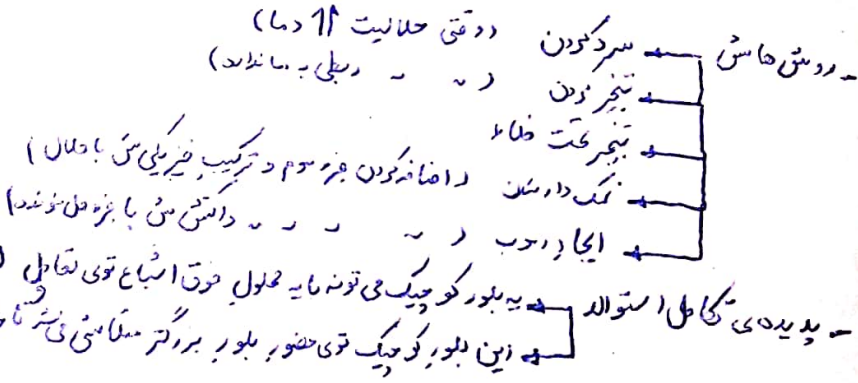 - روش هاش
سرد کردن (وقتی حلالیت ↑↑ دما)
تبخیر کردن (〃 〃 〃 ربطی به دما نداره)
تبخیر تحت خلاء
نمک دار شدن (اضافه کردن جزء سوم و ترکیب فیزیکی ش با حلال)
ایجاد رسوب (〃 〃 〃 〃 〃 واکنش ش با جزء حل شونده)
- پدیده ی تکامل استوالد
یه بلور کوچیک می تونه با یه محلول فوق اشباع توی تعادل
این بلور کوچیک توی حضور بلور بزرگتر متلاشی می شه تا